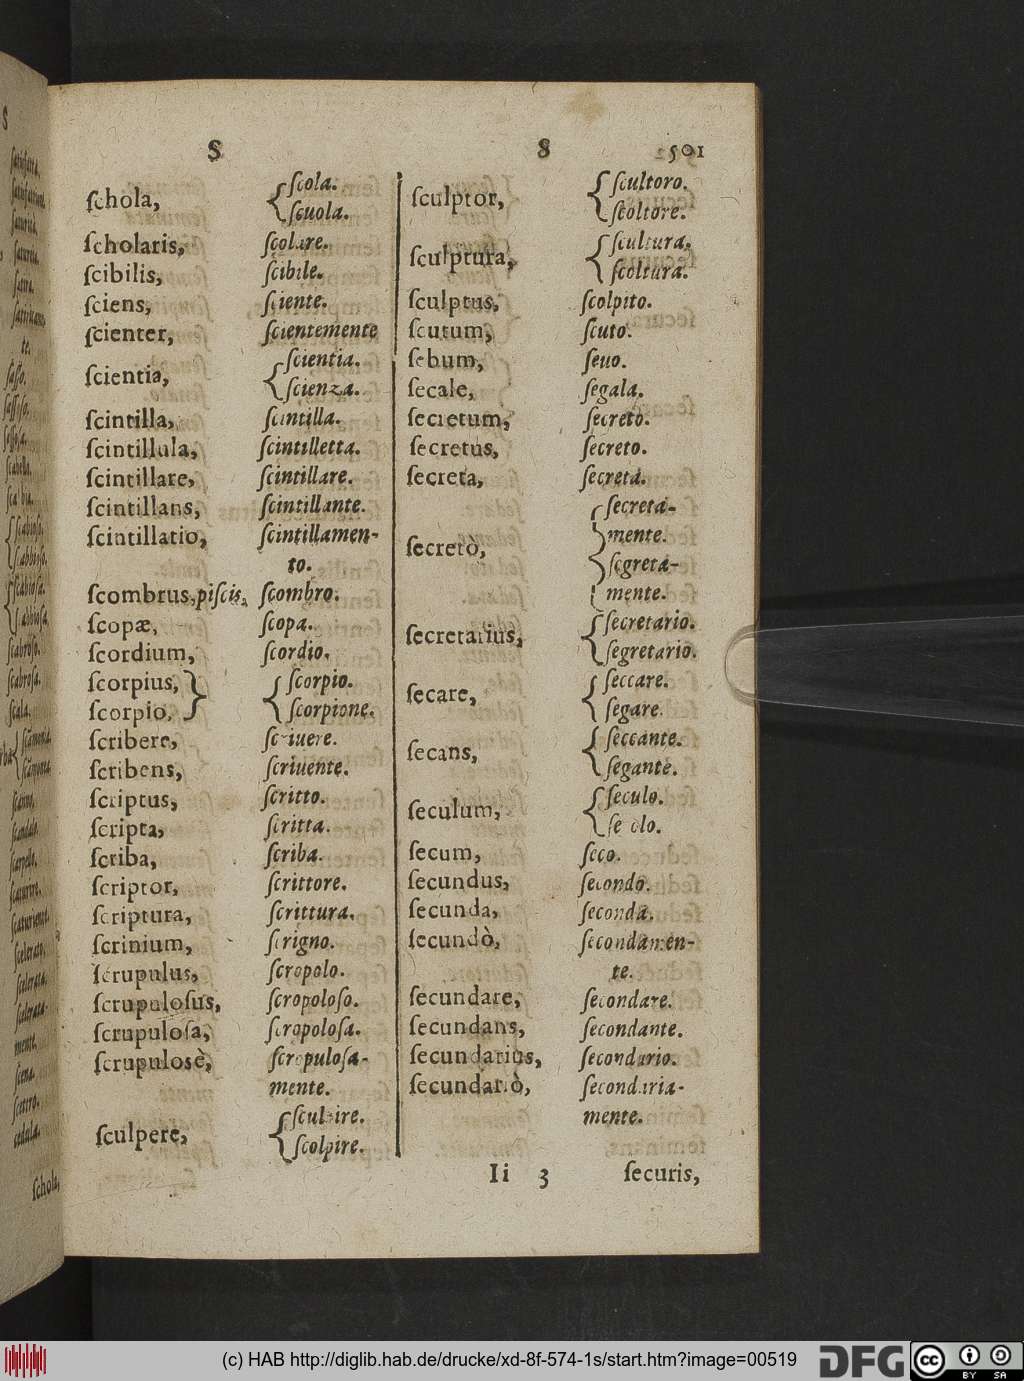 S S 501
ſchola, ſcola.
ſcuola.
ſcholaris, ſcolare.
ſcibilis, ſcibile.
ſciens, ſciente.
ſcienter, ſcientemente
ſcientia, ſcientia.
ſcienza.
ſcintilla, ſcintilla.
ſcintillula, ſcintilletta.
ſcintillare, ſcintillare.
ſcintillans, ſcintillante.
ſcintillatio, ſcintillamen-
to.
ſcombrus, piſcis, ſcombro.
ſcopæ, ſcopa.
ſcordium, ſcordio.
ſcorpius, ſcorpio.
ſcorpio, ſcorpione.
ſcribere, ſcriuere.
ſcribens, ſcriuente.
ſcriptus, ſcritto.
ſcripta, ſcritta.
ſcriba, ſcriba.
ſcriptor, ſcrittore.
ſcriptura, ſcrittura.
ſcrinium, ſcrigno.
ſcrupulus, ſcropolo.
ſcrupuloſus, ſcropoloſo.
ſcrupuloſa, ſcropoloſa.
ſcrupulosè, ſcropuloſa-
mente.
ſculpere, ſculpire.
ſcolpire.
ſculptor, ſcultoro.
ſcoltore.
ſculptura, ſcultura.
ſcoltura.
ſculptus, ſcolpito.
ſcutum, ſcuto.
ſebum, ſeuo.
ſecale, ſegala.
ſecretum, ſecreto.
ſecretus, ſecreto.
ſecreta, ſecreta.
ſecretò, ſecreta-
mente.
ſegreta-
mente.
ſecretarius, ſecretario.
ſegretario.
ſecare, ſeccare.
ſegare.
ſecans, ſeccante.
ſegante.
ſeculum, ſeculo.
ſecum, ſeco.
ſecundus, ſecondo.
ſecunda, ſeconda.
ſecundò, ſecondamen-
te.
ſecundare, ſecondare.
ſecundans, ſecondante.
ſecundarius, ſecondario.
ſecundariò, ſecondaria-
mente.
Ii 3 ſecuris,
ſchola,
(c) HAB http://diglib.hab.de/drucke/xd-8f-574-1s/start.htm?image=00519
DFG
cc BY SA